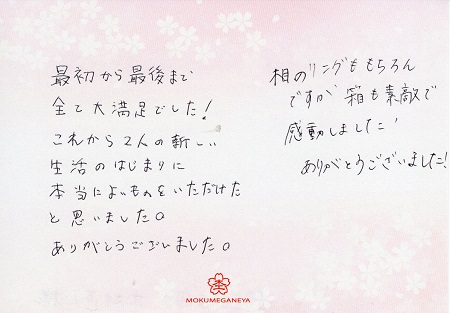 最初から最後まで
全て大満足でした!
これから2人の新しい
生活のはじまりに
本当によいものをいただけた
と思いました。
ありがとうございました。
柾のリングももちろん
ですが箱も素敵で
感動しました!
ありがとうございました!
MOKUMEGANEYA